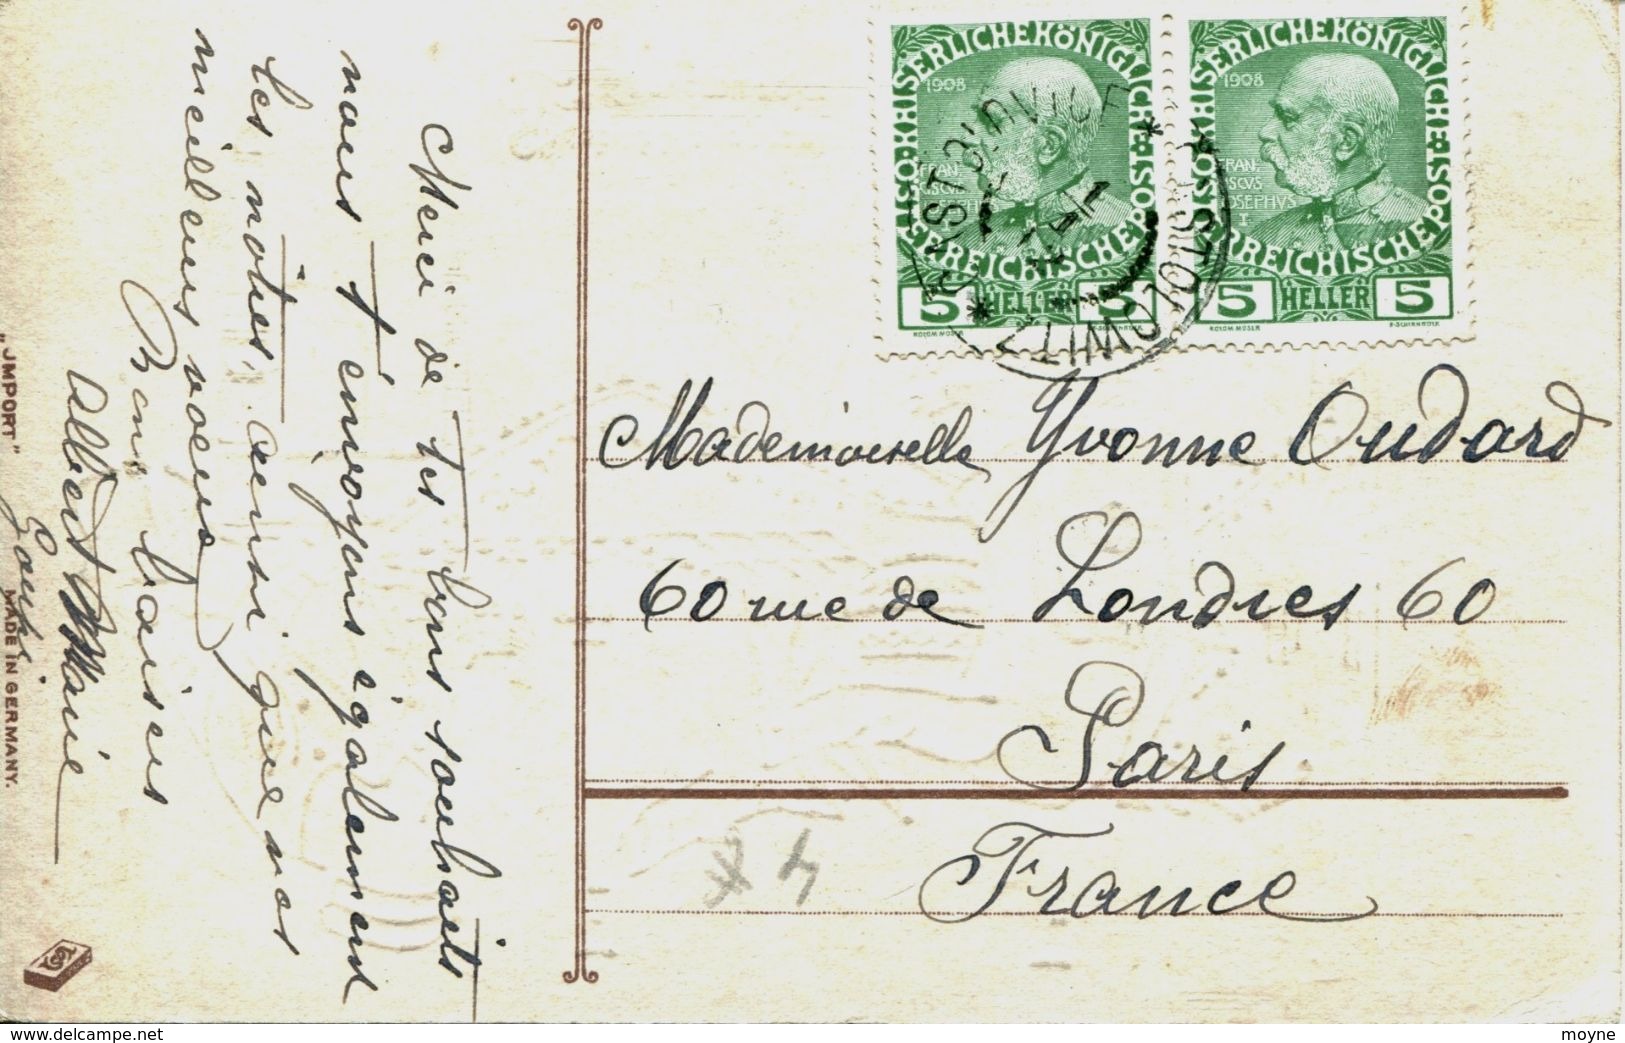 Merci de tes bons souhaits
nous t'envoyons également
les nôtres, ainsi que nos
meilleurs voeux
Bons baisers
Albert Marie
„JMPORT"
MADE IN GERMANY.
KAISERLICHE KÖNIGLICHE ÖSTERREICHISCHE POST
1908
FRAN,
CISCVS
IOSEPHVS
I.
5 HELLER 5
KOLOM. MOSER
F. SCHIRNBÖCK
KAISERLICHE KÖNIGLICHE ÖSTERREICHISCHE POST
1908
FRAN,
CISCVS
IOSEPHVS
I.
5 HELLER 5
KOLOM. MOSER
F. SCHIRNBÖCK
Mademoiselle Yvonne Oudard
60 rue de Londres 60
Paris
France
moyne